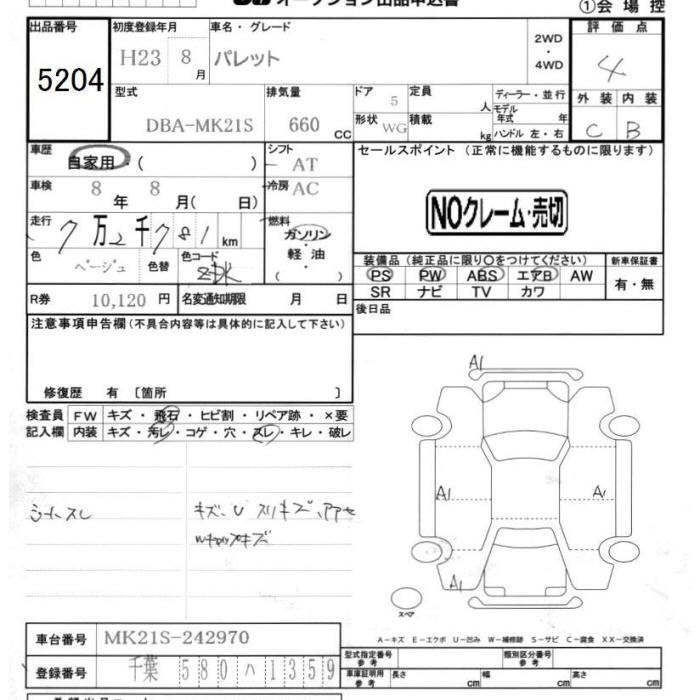 オークション出品申込書
①会場控
出品番号 初度登録年月 車名・グレード 評価点
5204 H23 8月 パレット 2WD・4WD 4
型式 排気量 ドア 定員 ディーラー・並行 外装 内装
DBA-MK21S 660 CC 5 人 モデル年式 年 C B
形状 WG 積載 kg ハンドル 左・右
車歴 自家用・( ) シフト AT セールスポイント (正常に機能するものに限ります)
車検 8年 8月( 日) 冷房 AC
NOクレーム・売切
走行 7万2千781km 燃料 ガソリン・軽油・( )
色 ベージュ 色替 色コード ZDK
装備品 (純正品に限り○をつけてください) 新車保証書
PS PW ABS エアB AW 有・無
SR ナビ TV カワ
R券 10,120円 名変通知期限 月 日 後日品
注意事項申告欄 (不具合内容等は具体的に記入して下さい)
修復歴 有 〔箇所 〕
検査員 FW キズ・飛石・ヒビ割・リペア跡・×要
記入欄 内装 キズ・汚レ・コゲ・穴・スレ・キレ・破レ
シートスレ キズ・U スリキズ
キズ
A1
A1 A1
A1
スペア
A－キズ E－エクボ U－凹み W－補修跡 S－サビ C－腐食 XX－交換済
車台番号 MK21S-242970
型式指定番号 参考 類別区分番号 参考
登録番号 千葉 580 ハ 1359
車庫証明用 参考 長さ cm 幅 cm 高さ cm